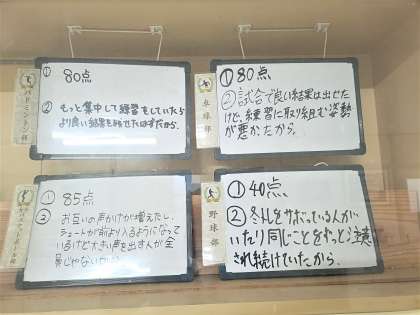 バドミントン部
① 80点
② もっと集中して練習をしていたら
より良い結果を残せたはずだから。
卓球部
① 80点
② 試合で良い結果は出せた
けど、練習に取り組む姿勢
が悪かったから。
バスケットボール部
① 85点
② お互いの声かけが増えたし、
シュートが前より入るようになって
いるけど大きい声を出す人が全
員じゃないから。
野球部
① 40点
② 冬トレをサボっている人がい
いたり同じことをずっと注意
され続けていたから。